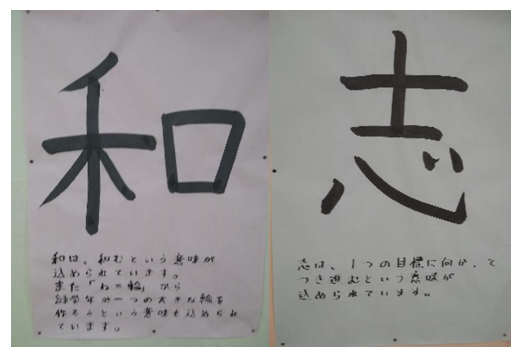 和
和は、和むという意味が
込められています。
また「わ=輪」から
学年が一つの大きな輪を
作ろうという意味も込められ
ています。
志
志は、1つの目標に向かって
つき進むという意味が
込められています。